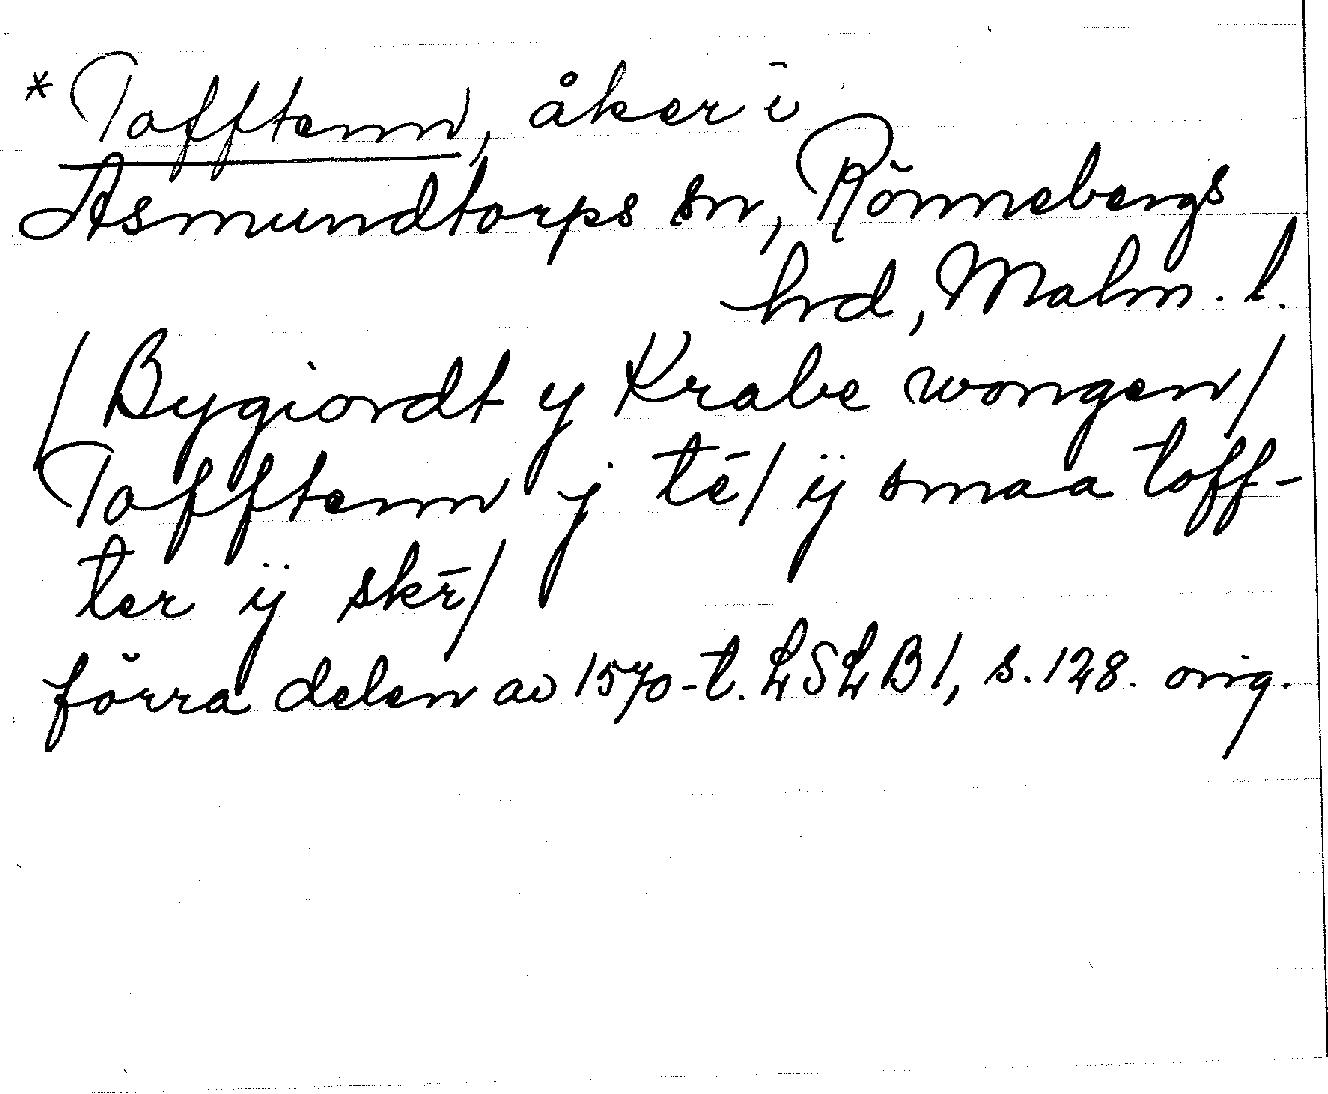 * Tofftenn, åker i
Asmundtorps sn, Rönnebergs
hrd, Malm. l.
/ Bygiordt y Krabe wongen /
Tofftenn j tē / ij smaa toff-
ter ij skr̄ /
förra delen av 1570-t. LSLB 1, s. 128. orig.